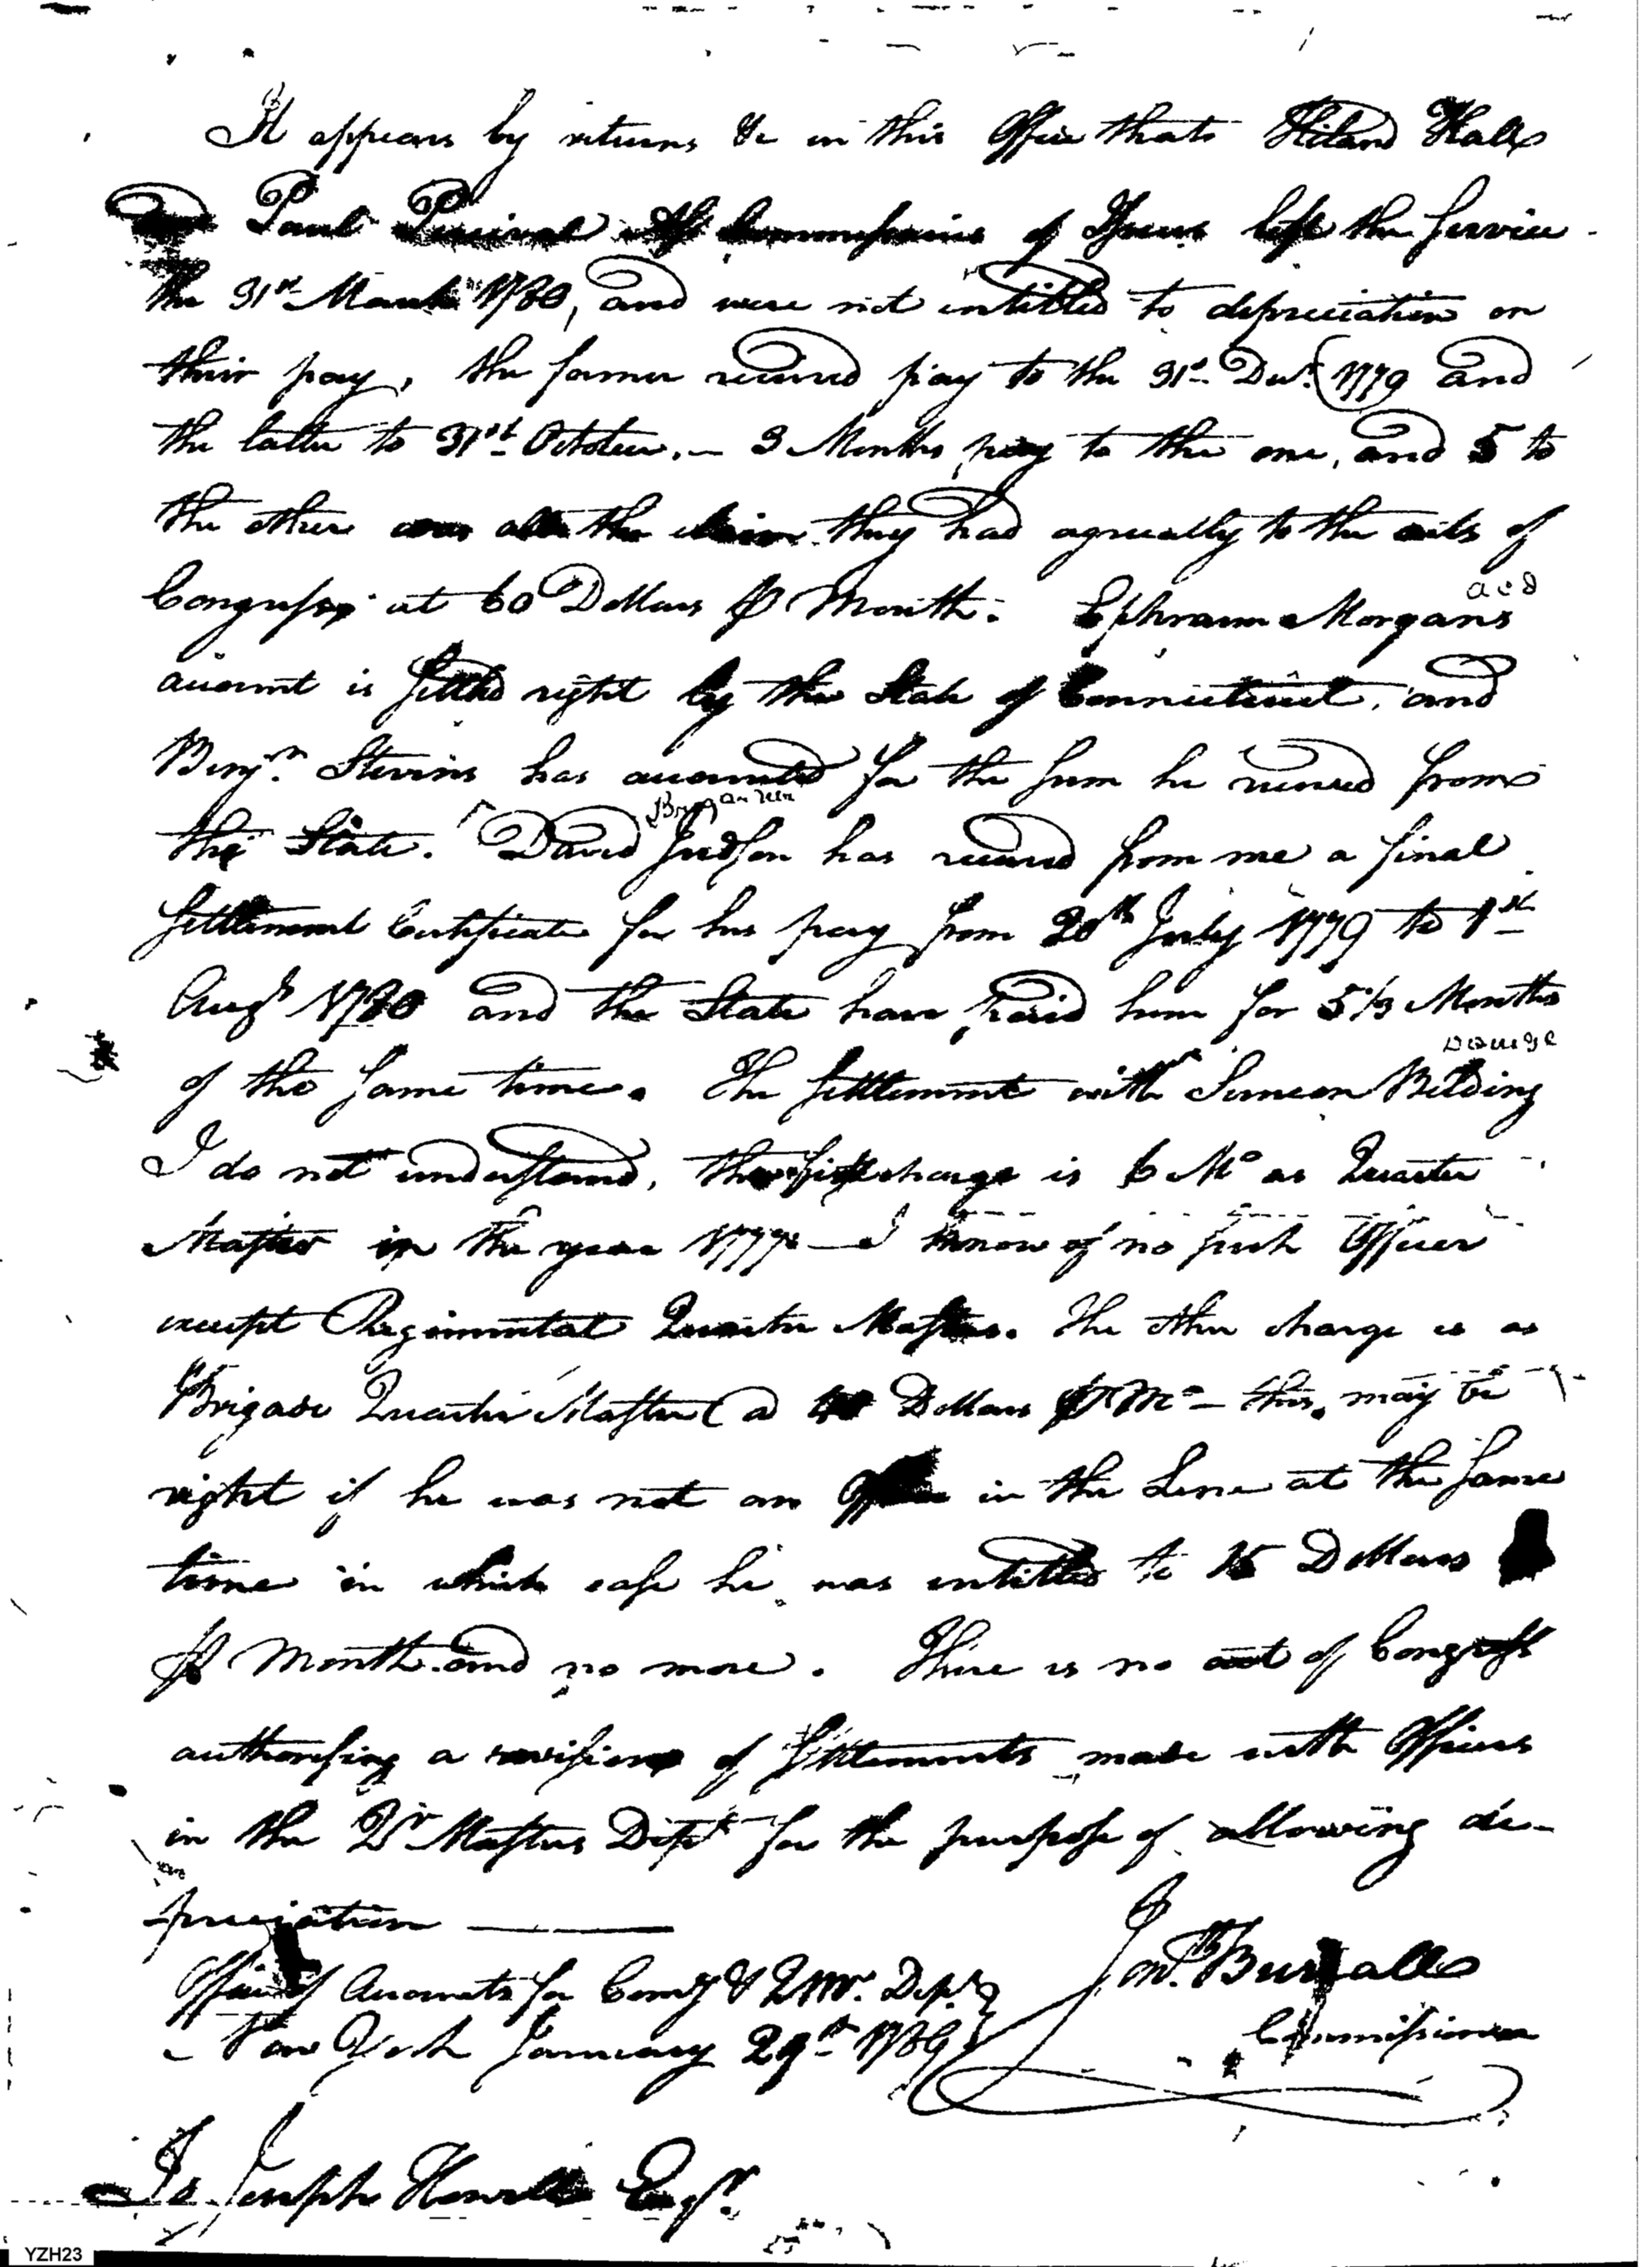 It appears by returns &c in this Office that Hiland Hall
and Paul Percival Asst Commissaries of Issues left the Service
the 31st March 1780, and were not intitled to depreciation on
their pay, the former received pay to the 31st Decr. 1779 and
the latter to 31st October. — 3 Months pay to the one, and 5 to
the other was all the claim they had agreeably to the acts of
Congress at 60 Dollars ⅌ Month. Ephraim Morgans
account is settled right by the State of Connecticut, and
Benjn. Stevins has accounted for the sum he received from
the State. David Judson has received from me a final
Settlement Certificate for his pay from 20th July 1779 to 1st
Augt 1780 and the State have paid him for 5 1/3 Months
of the same time. The settlement with Simeon Belding
I do not understand, the first charge is 6 Mo as Quarter
Master in the year 1777 — I know of no such Officer
except Regimental Quarter Master. The other charge is as
Brigade Quarter Master (a Dollars ⅌ Mo — this may be
right if he was not an Officer in the Line at the same
time in which case he was entitled to 15 Dollars
⅌ Month and no more. There is no act of Congress
authorising a revision of settlements made with Officers
in the Qr Masters Dept for the purpose of allowing de-
preciation ———
Office of Accounts for Comy & QMr. Dept.
New York January 29th 1789
Jonth. Burrall
Commissioner
To Joseph Howell Esqr.
YZH23